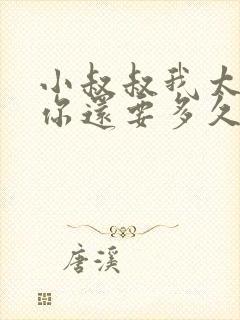 小叔叔我太
你還要多久
唐溪